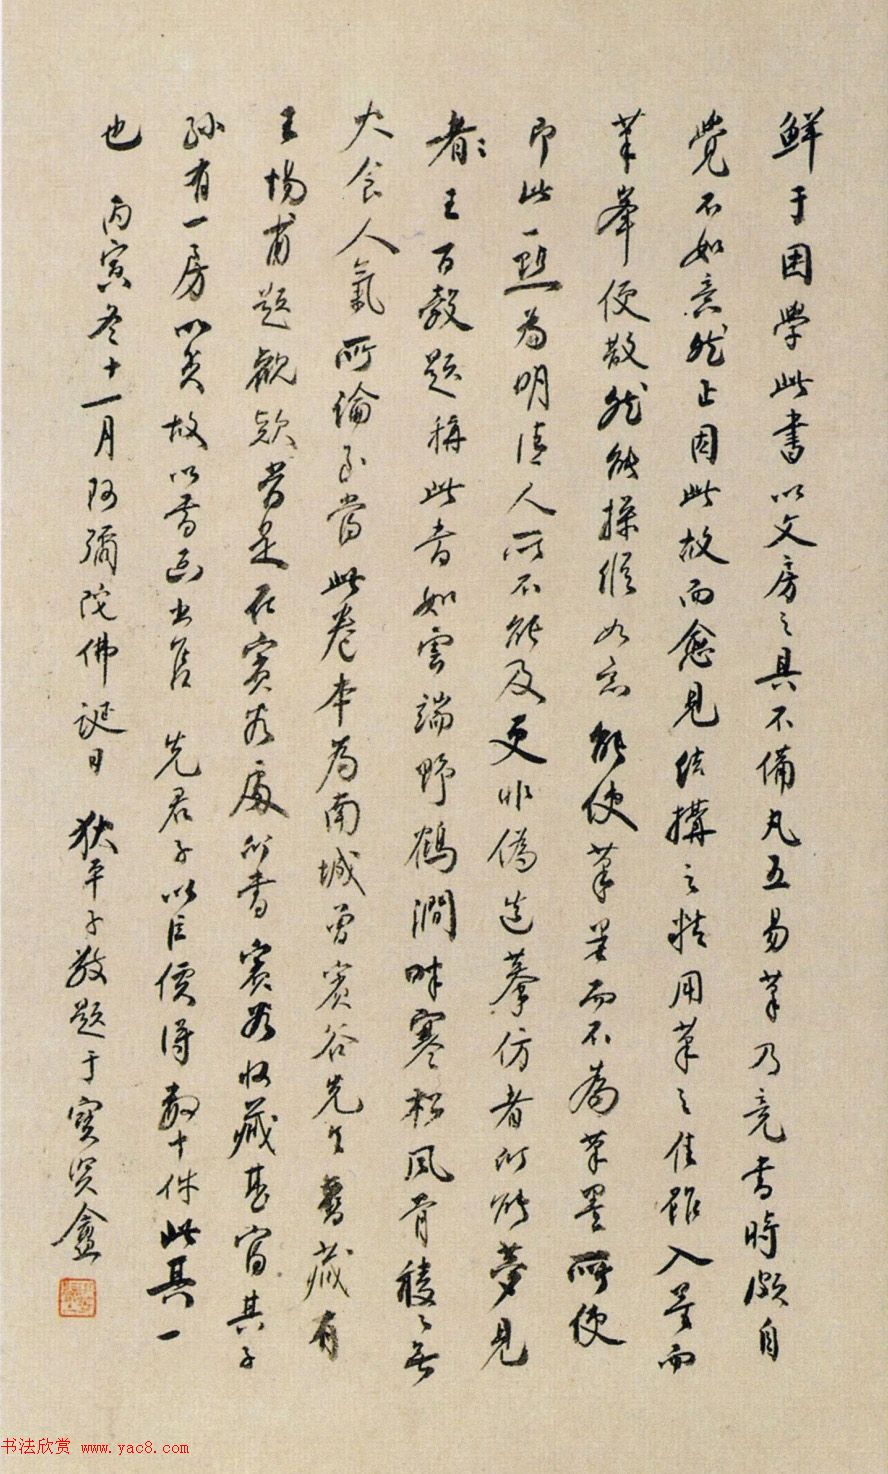 鲜于困學此書以文房之具不備凡五易筆乃竟書時頗自
覺不如意然正因此故而愈見結構之精用筆之佳雖入墨而
筆峯便散然能操縱如意能使筆墨而不爲筆墨所使
即此一點為明清人所不能及更非偽造摹仿者所能夢見
者王百穀題稱此書如雲端野鶴澗畔寒松風骨稜々無
火食人氣所論至當此卷本為南城曾賓谷先生舊藏有
王惕甫題觀款當是在賓谷處所書賓谷收藏甚富其子
孫有一房以貧故以書画出售 先君子以巨價得數十件此其一
也 丙寅冬十一月阿彌陀佛誕日 狄平子敬題于寶賢盦
书法欣赏 www.yac8.com